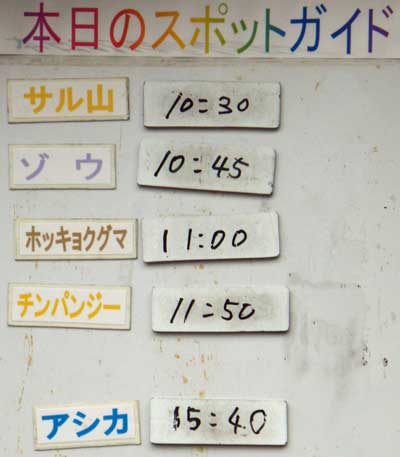 本日のスポットガイド
サル山 10:30
ゾウ 10:45
ホッキョクグマ 11:00
チンパンジー 11:50
アシカ 15:40